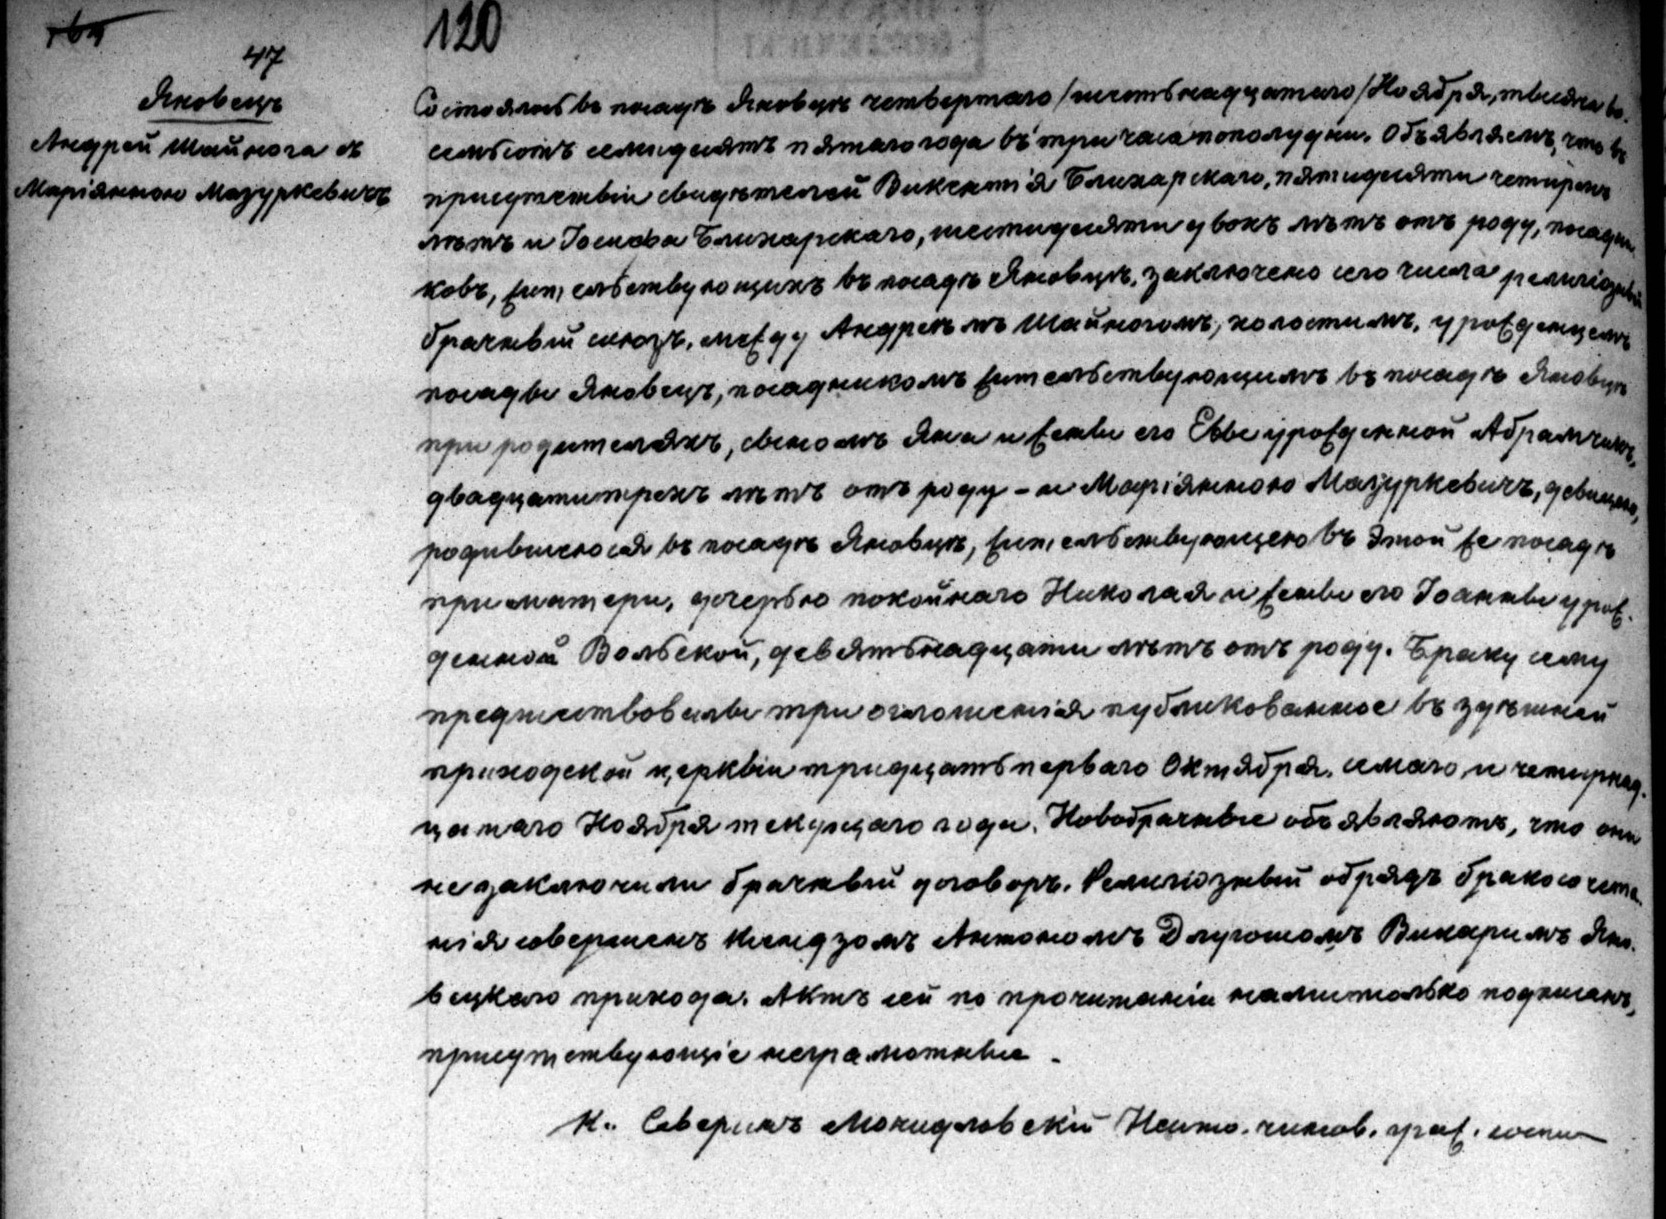 120
47
Яновецъ
Андрей Шайнога съ
Маріянною Мазуркевичъ
Состоялось въ посадѣ Яновцѣ четвертаго /шестьнадцатаго/ Ноября, тысяча во-
семьсотъ семидесятъ пятаго года въ три часа пополудни. Объявляемъ, что въ
присутствіи свидѣтелей Викентія Блихарскаго, пятидесяти четырехъ
лѣтъ и Іосифа Блихарскаго, шестидесяти двохъ лѣтъ отъ роду, посадни-
ковъ, жительствующихъ въ посадѣ Яновцѣ, заключено сего числа религіозный
брачный союзъ, между Андреемъ Шайногомъ, холостымъ, уроженцемъ
посады Яновецъ, посадникомъ жительствующимъ въ посадѣ Яновцѣ
при родителяхъ, сыномъ Яна и жены его Евы урожденной Абрамчикъ,
двадцатитрехъ лѣтъ отъ роду - и Маріянною Мазуркевичъ, девицею,
родившеюся въ посадѣ Яновцѣ, жительствующею въ этой же посадѣ
при матери, дочерью покойнаго Николая и жены его Іоанны урож-
денной Вольской, девятьнадцати лѣтъ отъ роду. Браку сему
предшествовалы три оглошенія публикованное въ здѣшней
приходской церквіи тридцать перваго Октября, семаго и четырнад-
цатаго Ноября текущаго года. Новобрачные объявляютъ, что они
не заключили брачный договоръ. Религіозный обрядъ бракосочета-
нія совершенъ Ксендзомъ Антономъ Длугошомъ Викаримъ Яно-
вецкаго прихода. Актъ сей по прочитаніи нами только подписанъ,
присутствующіе неграмотные -
К. Северинъ